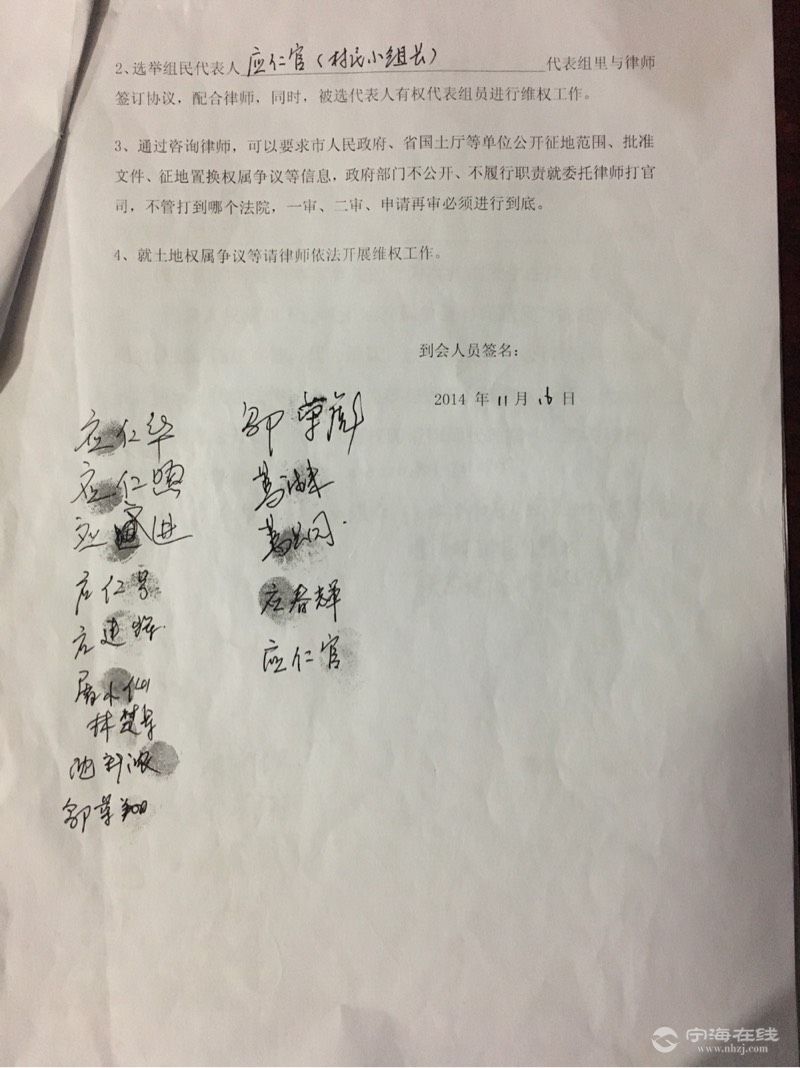 2、选举组民代表人 应仁官(村民小组长) 代表组里与律师
签订协议，配合律师，同时，被选代表人有权代表组员进行维权工作。
3、通过咨询律师，可以要求市人民政府、省国土厅等单位公开征地范围、批准
文件、征地置换权属争议等信息，政府部门不公开、不履行职责就委托律师打官
司，不管打到哪个法院，一审、二审、申请再审必须进行到底。
4、就土地权属争议等请律师依法开展维权工作。
到会人员签名：
2014 年 11 月 16 日
应仁华
应仁照
应仁号
应建辉
林楚
邬荣翔
邬荣彪
葛
葛
应春辉
应仁官
宁海在线
www.nhzj.com